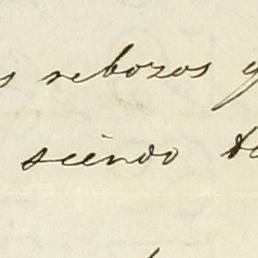 s rebozos y
siendo te